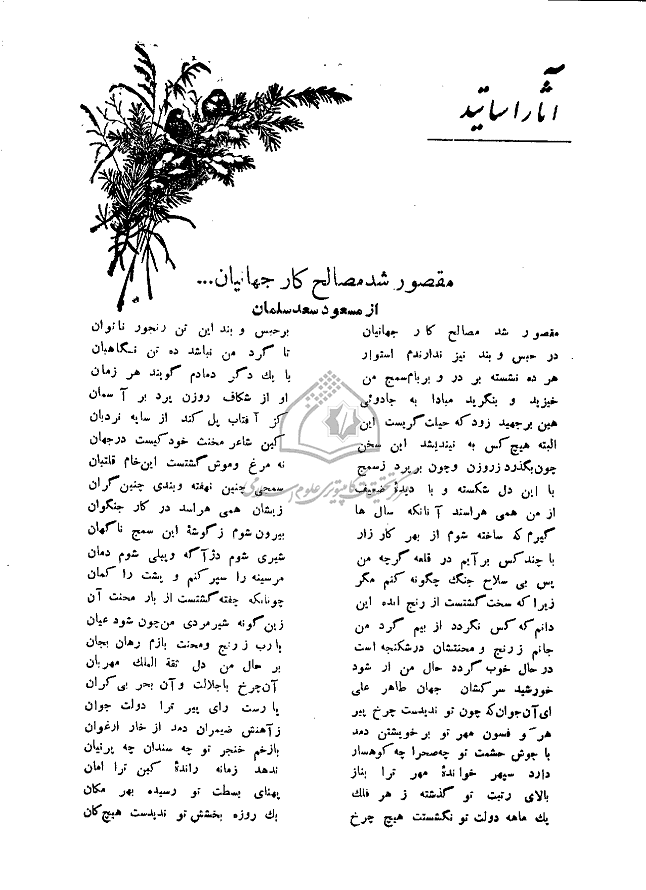 آثار اساتید
مقصور شد مصالح کار جهانیان...
از مسعود سعد سلمان
مقصور شد مصالح کار جهانیان برحبس و بند این تن رنجور ناتوان
در حبس و بند نیز ندارندم استوار تا گرد من نباشد ده تن نگاهبان
هر ده نشسته بر در و بر بام سمج من با یك دگر دمادم گویند هر زمان
خیزید و بنگرید مبادا به جادوئی او از شکاف روزن پرد بر آسمان
هین برجهید زود که حیلت گریست این کز آفتاب پل کند از سایه نردبان
البته هیچ کس به نیندیشد این سخن کین شاعر مخنث خود کیست درجهان
چون بگذرد زروزن وچون بر پرد زسمج نه مرغ وموش گشتست این خام قلتبان
با این دل شکسته و با دیدۀ ضعیف سمجی چنین نهفته وبندی چنین گران
از من همی هراسند آنانکه سال ها زیشان همی هراسد در کار جنگوان
گیرم که ساخته شوم از بهر کار زار بیرون شوم زگوشۀ این سمج ناگهان
با چند کس بر آیم در قلعه گرچه من شیری شوم دژ آگه وپیلی شوم دمان
پس بی سلاح جنگ چگونه کنم مگر مرسینه را سپر کنم و پشت را کمان
زیرا که سخت گشتست از رنج انده این چونانکه جفته گشتست از بار محنت آن
دانم که کس نگردد از بیم گرد من زین گونه شیرمردی من چون شود عیان
جانم زرنج و محنتشان درشکنجه است یارب زرنج ومحنت بازم رهان بجان
در حال خوب گردد حال من ار شود بر حال من دل ثقة الملك مهربان
خورشید سرکشان جهان طاهر علی آن چرخ باجلالت وآن بحر بی کران
ای آن جوان که چون تو ندیدست چرخ پیر یا رست رای پیر ترا دولت جوان
هر کو فسون مهر تو بر خویشتن دمد زآهنش ضیمران دمد از خار ارغوان
با جوش حشمت تو چه صحرا چه کوهسار بازخم خنجر تو چه سندان چه پرنیان
دارد سپهر خواندۀ مهر ترا بناز ندهد زمانه راندۀ کین ترا امان
بالای رتبت تو گذشته ز هر فلك پهنای بسطت تو رسیده بهر مکان
یك ماهه دولت تو نگشتست هیچ چرخ یك روزه بخشش تو ندیدست هیچ کان
مرکز تحقیقات کامپیوتری علوم اسلامی